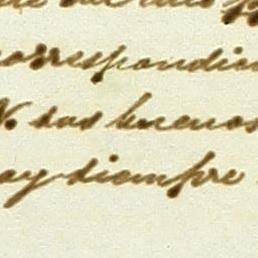 correspondien
V. sus buenos
oy siempre